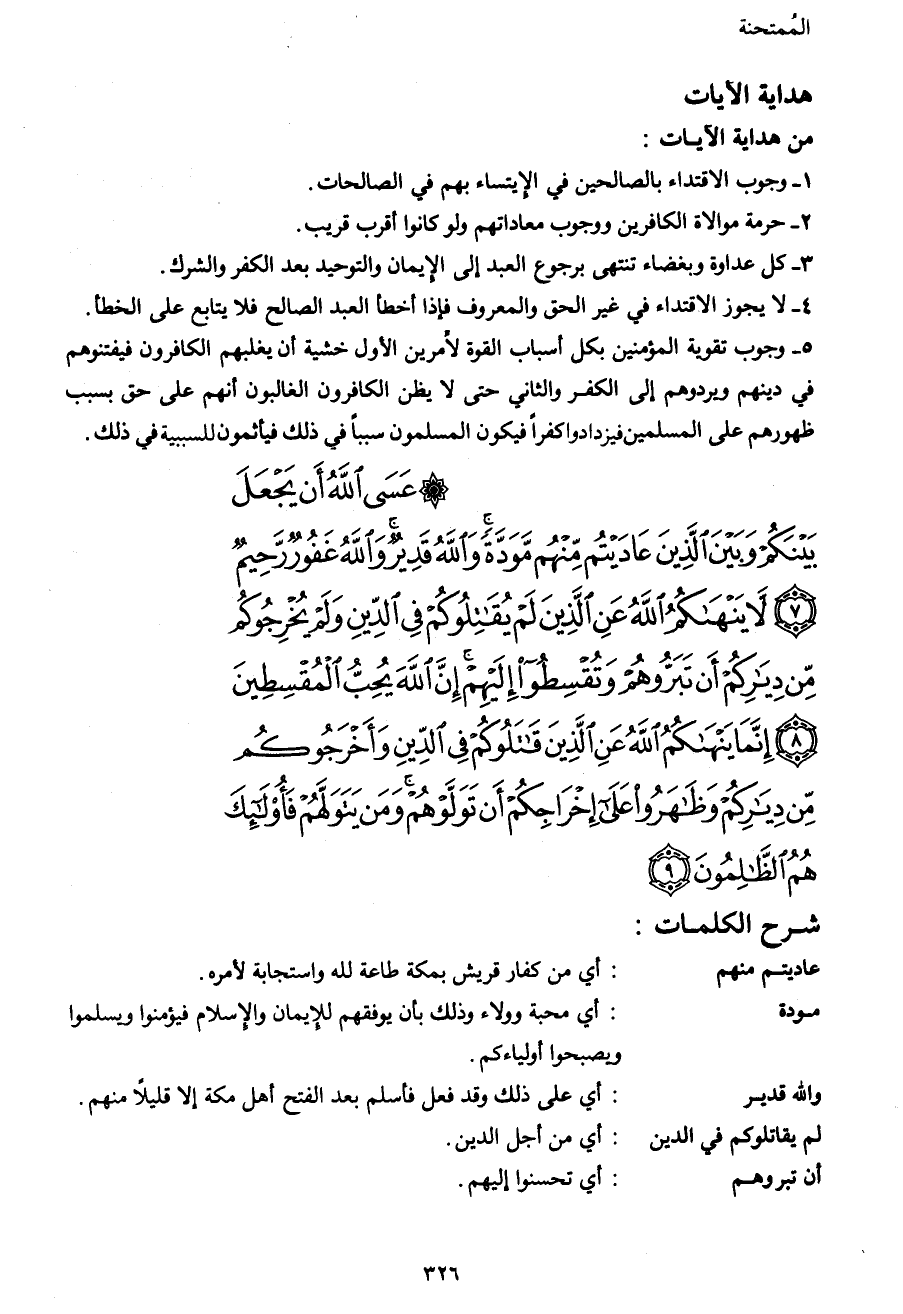 المُمتحنة
هداية الآيات
من هداية الآيـات :
١ـ وجوب الاقتداء بالصالحين في الإيتساء بهم في الصالحات.
٢ـ حرمة موالاة الكافرين ووجوب معاداتهم ولو كانوا أقرب قريب.
٣ـ كل عداوة وبغضاء تنتهى برجوع العبد إلى الإيمان والتوحيد بعد الكفر والشرك.
٤ـ لا يجوز الاقتداء في غير الحق والمعروف فإذا أخطأ العبد الصالح فلا يتابع على الخطأ.
٥ـ وجوب تقوية المؤمنين بكل أسباب القوة لأمرين الأول خشية أن يغلبهم الكافرون فيفتنوهم
في دينهم ويردوهم إلى الكفـر والثاني حتى لا يظن الكافرون الغالبون أنهم على حق بسبب
ظهورهم على المسلمين فيزدادوا كفراً فيكون المسلمون سبباً في ذلك فيأثمون للسببية في ذلك.
۞ عَسَى ٱللَّهُ أَن يَجْعَلَ
بَيْنَكُمْ وَبَيْنَ ٱلَّذِينَ عَادَيْتُم مِّنْهُم مَّوَدَّةً ۚ وَٱللَّهُ قَدِيرٌ ۚ وَٱللَّهُ غَفُورٌ رَّحِيمٌ
٧ لَّا يَنْهَىٰكُمُ ٱللَّهُ عَنِ ٱلَّذِينَ لَمْ يُقَـٰتِلُوكُمْ فِى ٱلدِّينِ وَلَمْ يُخْرِجُوكُم
مِّن دِيَـٰرِكُمْ أَن تَبَرُّوهُمْ وَتُقْسِطُوٓا۟ إِلَيْهِمْ ۚ إِنَّ ٱللَّهَ يُحِبُّ ٱلْمُقْسِطِينَ
٨ إِنَّمَا يَنْهَىٰكُمُ ٱللَّهُ عَنِ ٱلَّذِينَ قَـٰتَلُوكُمْ فِى ٱلدِّينِ وَأَخْرَجُوكُم
مِّن دِيَـٰرِكُمْ وَظَـٰهَرُوا۟ عَلَىٰٓ إِخْرَاجِكُمْ أَن تَوَلَّوْهُمْ ۚ وَمَن يَتَوَلَّهُمْ فَأُو۟لَـٰٓئِكَ
هُمُ ٱلظَّـٰلِمُونَ ٩
شـرح الكلمـات :
عاديتـم منهم : أي من كفار قريش بمكة طاعة لله واستجابة لأمره.
مـودة : أي محبة وولاء وذلك بأن يوفقهم للإيمان والإسلام فيؤمنوا ويسلموا
ويصبحوا أولياءكم.
والله قديـر : أي على ذلك وقد فعل فأسلم بعد الفتح أهل مكة إلا قليلاً منهم.
لم يقاتلوكم في الدين : أي من أجل الدين.
أن تبروهـم : أي تحسنوا إليهم.
٣٢٦